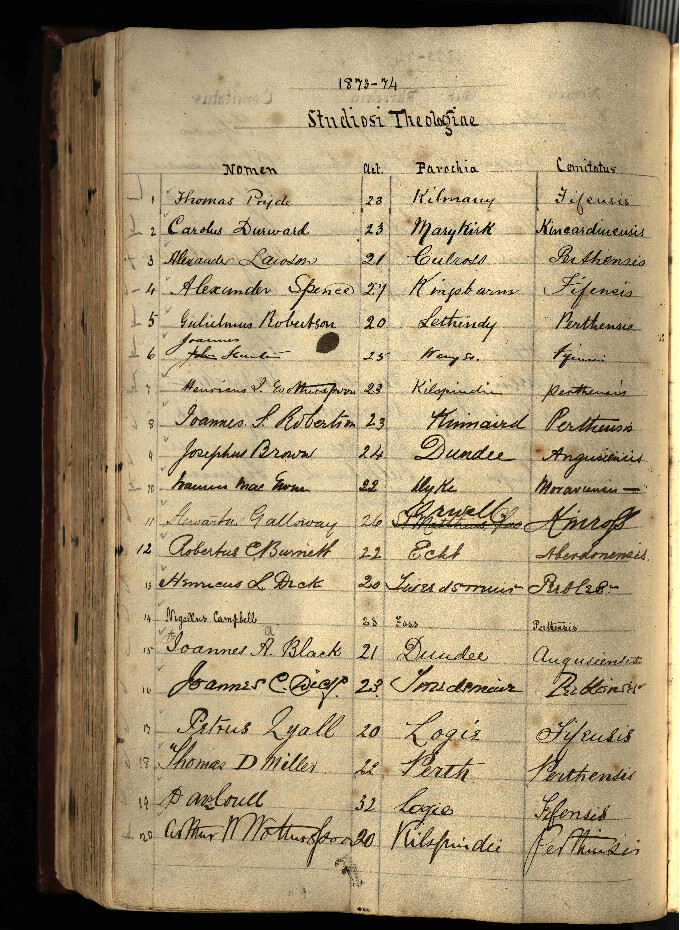 1873-74
Studiosi Theologiae
Nomen Aet. Parochia Comitatus
1 Thomas Pryde 23 Kilmany Fifensis
2 Carolus Durward 23 MaryKirk Kincardinensis
3 Alexander Lawson 21 Culross Perthensis
4 Alexander Spence 27 Kingsbarns Fifensis
5 Gulielmus Robertson 20 Lethendy Perthensis
Joannes
6 John 25 Fifensis
7 Henricus Wotherspoon 23 Kilspindie Perthensis
8 Joannes S. Robertson 23 Kinnaird Perthensis
9 Josephus Brown 24 Dundee Angusiensis
10 Mac 22 Dyke Moraviensis
11 Galloway 26 Kinross
12 Robertus C. Burnett 22 Echt Aberdonensis.
13 Henricus L Dick 20
14 Nigellus Campbell 23 Foss Perthensis
15 Joannes A. Black 21 Dundee Angusiensis
16 Joannes C. Dick. 23
17 Petrus Lyall 20 Logie Fifensis
18 Thomas D Miller 22 Perth Perthensis
19 32 Logie Fifensis
20 Arthur N Wotherspoon 20 Kilspindie Perthensis